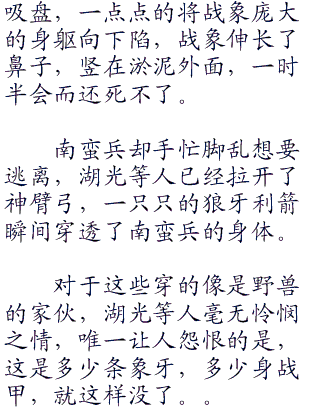 吸盘，一点点的将战象庞大
的身躯向下陷，战象伸长了
鼻子，竖在淤泥外面，一时
半会而还死不了。
南蛮兵却手忙脚乱想要
逃离，湖光等人已经拉开了
神臂弓，一只只的狼牙利箭
瞬间穿透了南蛮兵的身体。
对于这些穿的像是野兽
的家伙，湖光等人毫无怜悯
之情，唯一让人怨恨的是，
这是多少条象牙，多少身战
甲，就这样没了。。